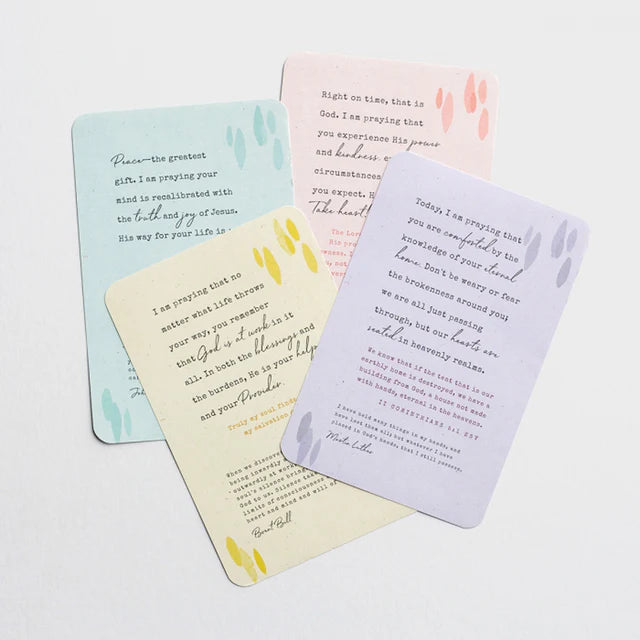 Peace—the greatest
gift. I am praying your
mind is recalibrated with
the truth and joy of Jesus.
His way for your life is
Right on time, that is
God. I am praying that
you experience His power
and kindness.
circumstances
you expect. H
Take heart!
The Lor
His pro
I am praying that no
matter what life throws
your way, you remember
that God is at work in it
all. In both the blessings and
the burdens, He is your help
and your Provider.
Truly my soul finds
my salvation
When we discover
being inwardly
outwardly at work
soul's silence
God to us. Silence
limits of consciousness
heart and mind and will
Today, I am praying that
you are comforted by the
knowledge of your eternal
home. Don't be weary or fear
the brokenness around you;
we are all just passing
through, but our hearts are
seated in heavenly realms.
We know that if the tent that is our
earthly home is destroyed, we have a
building from God, a house not made
with hands, eternal in the heavens.
II CORINTHIANS 5:1 ESV
I have held many things in my hands, and
have lost them all; but whatever I have
placed in God's hands, that I still possess.
Martin Luther